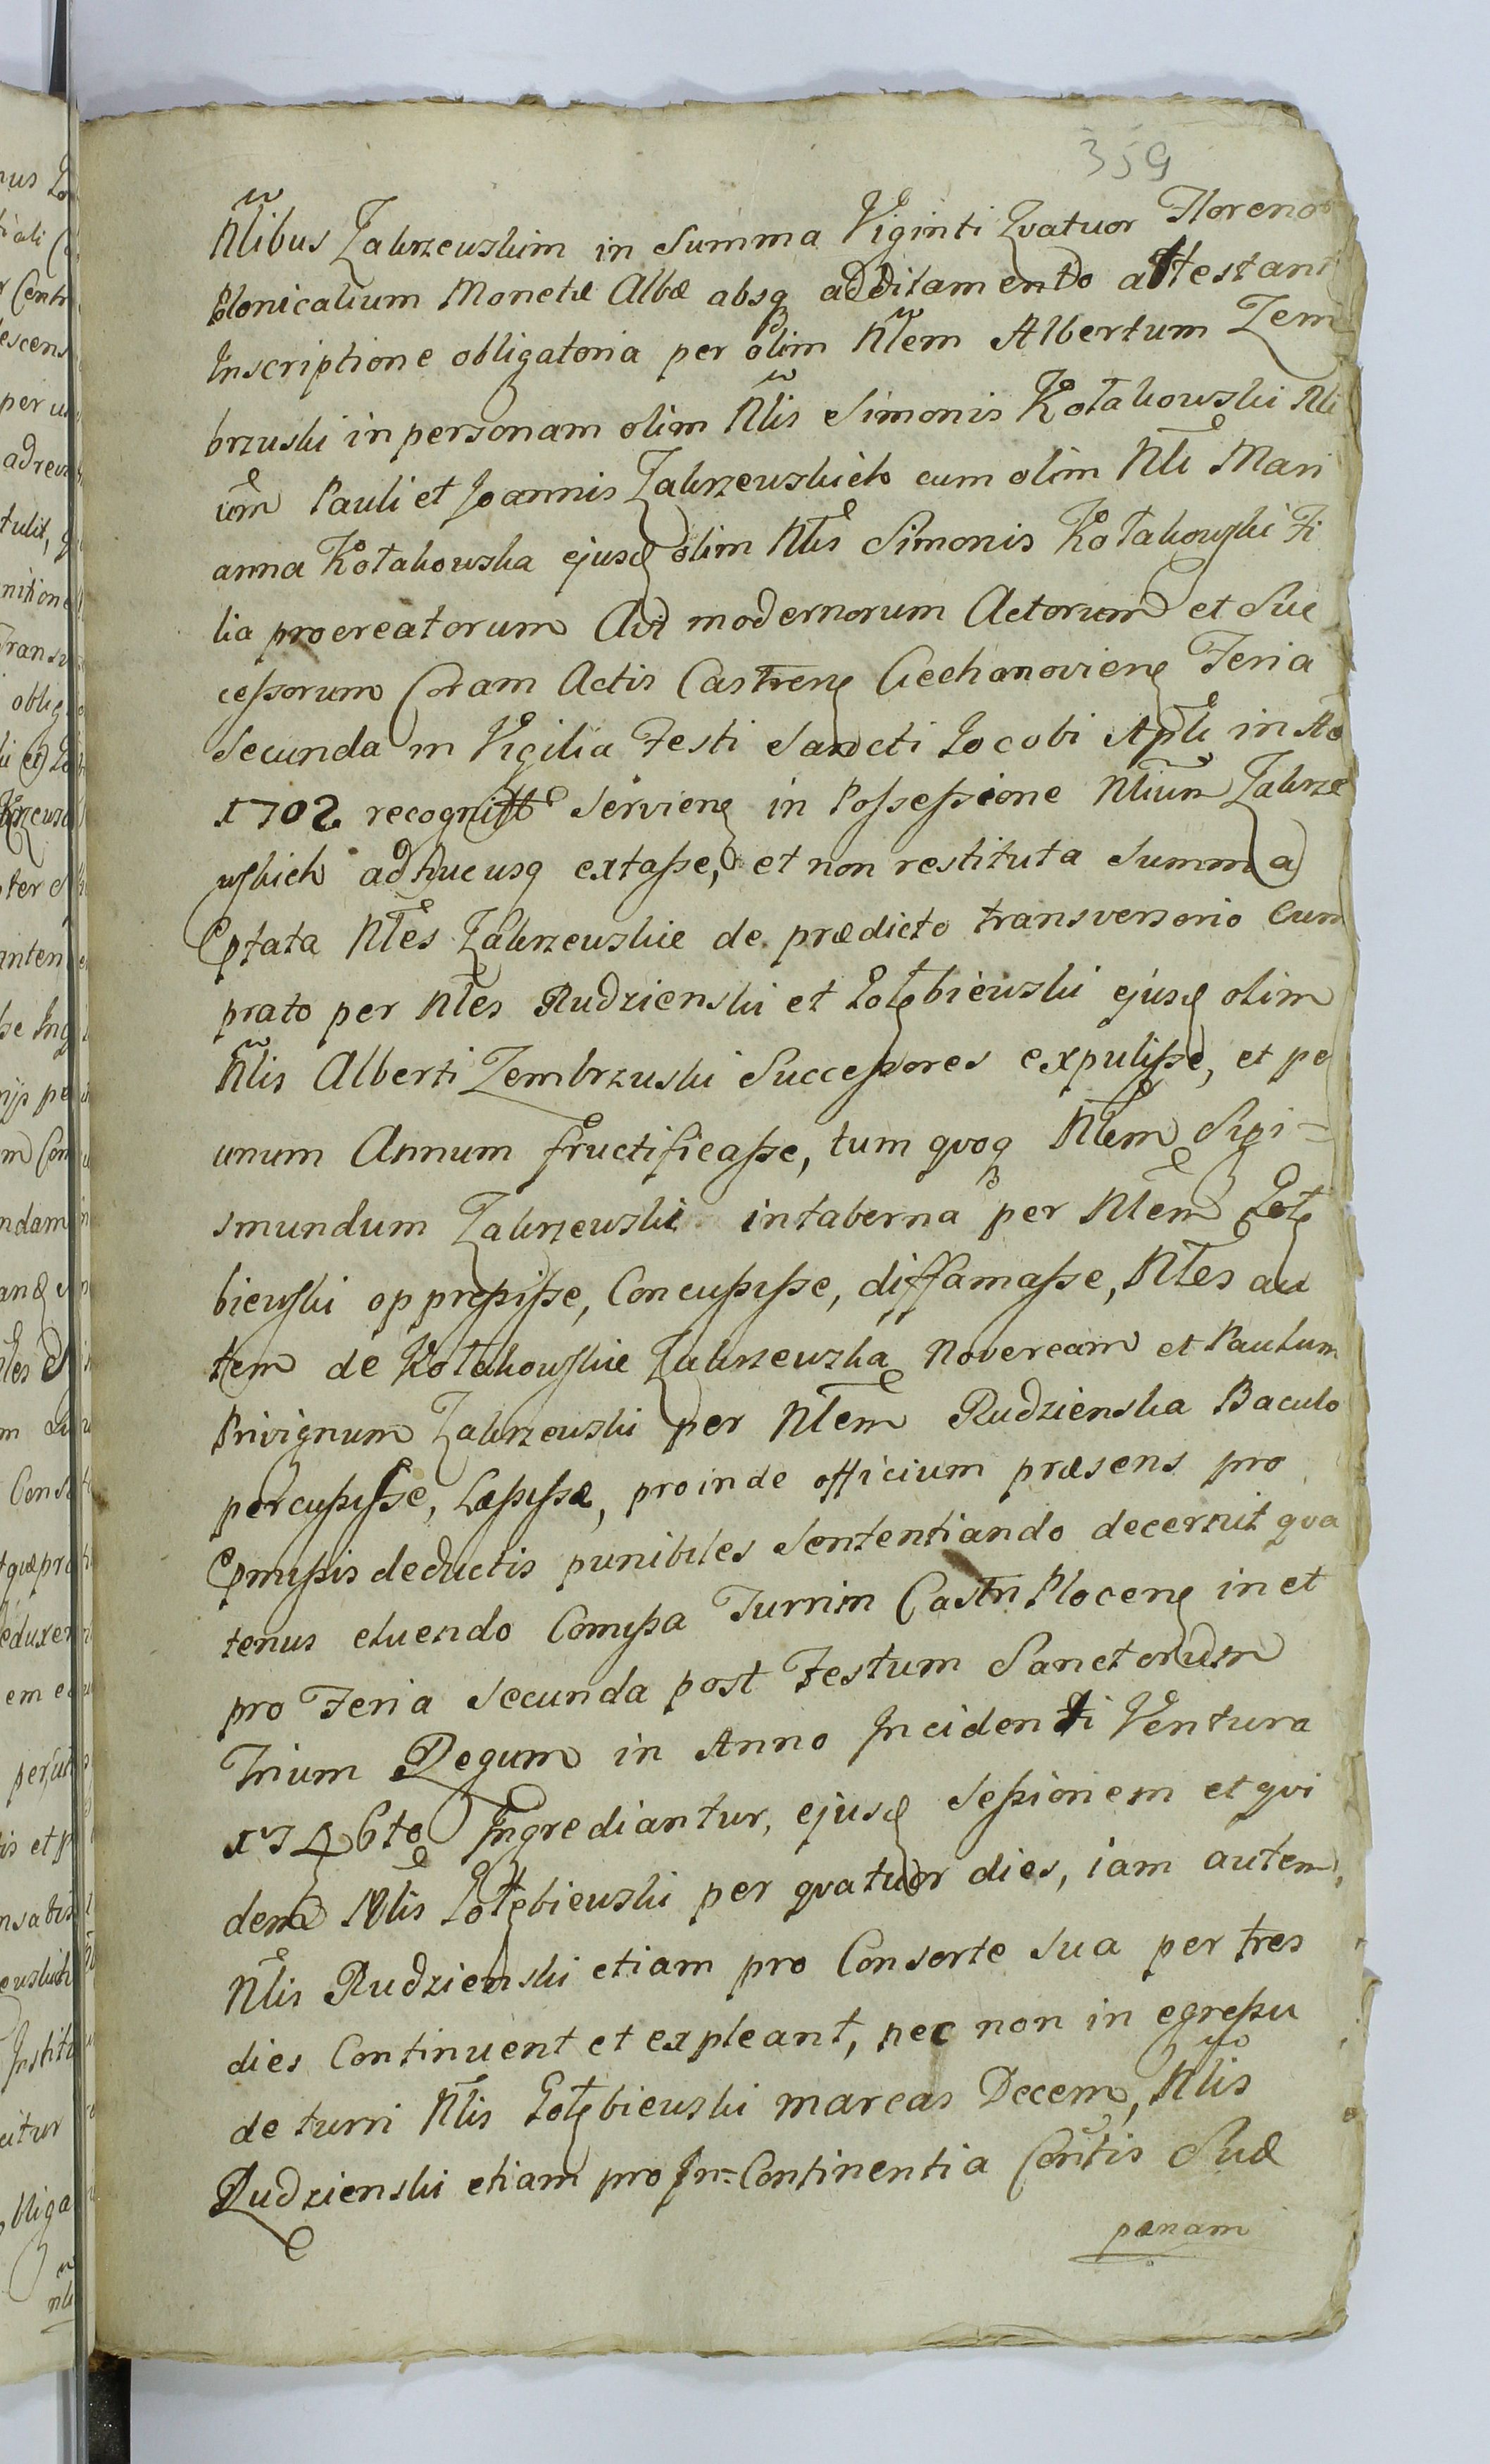 359
Nlibus Zakrzewskim in Summa Viginti Qvatuor Floreno
Plonicalium Monetæ Albæ absq additamento attestant
Inscriptione obligatoria per olim Nlem Albertum Zem
brzuski in personam olim Nlis Simonis Kołakowski Nli
um Pauli et Joannis Zakrzewskich cum olim Nli Mari
anna Kołakowska ejusd olim Nlis Simonis Kołakowski Fi
lia procreatorum Avi modernorum Actorum et Suc
cessorum Coram Actis Castren Ciechanovien Feria
Secunda in Vigilia Festi Sancti Jacobi Apli in Ao
1702 recognit Servien in Possessione Nlium Zakrze
wskich adhucusq extasse, et non restituta Summa
Ptata Nles Zakrzewskie de prædicto transversorio cum
prato per Nles Rudzienski et Gołębiewski ejusd olim
Nlis Alberti Zembrzuski Successores expulisse, et pe
unum Annum fructificasse, tum qvoq Nlem Sigi=
smundum Zakrzewski in taberna per Nlem Gołę
biewski oppressisse, Concussisse, diffamasse, Nles au
tem de Kołakowskie Zakrzewska Novercam et Paulum
Privignum Zakrzewski per Nlem Rudzienska Baculo
percussisse, Læsisse, proinde officium præsens pro
Pmissis deductis punibiles Sententiando decernit qva
tenus eluendo Comissa Turrim Castri Plocen in et
pro Feria Secunda post Festum Sanctorum
Trium Regum in Anno Incidenti Ventura
1746to Ingrediantur, ejusd Sessionem et qvi
dem Nlis Gołębiewski per qvatuor dies, iam autem
Nlis Rudzienski etiam pro Consorte Sua per tres
dies Continuent et expleant, nec non in egressu
de turri Nlis Gołębiewski marcas Decem, Nlis
Rudzienski etiam pro In=Continentia Contis Suæ
pænam